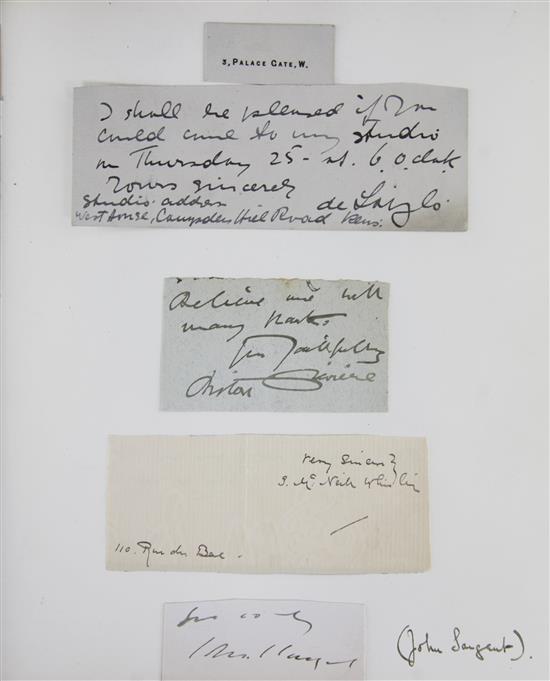 3, PALACE GATE, W.
I shall be pleased if You
could come to my studio
on Thursday 25- at. 6. o.clok
Yours sincerely
de László.
Studio: address
West House, Campden Hill Road Kens.
Believe me with
many thanks
Yrs faithfully
Briton Riviere
Very Sincerely
J. Mc Neill Whistler
110. Rue du Bac.
(John Sargent).